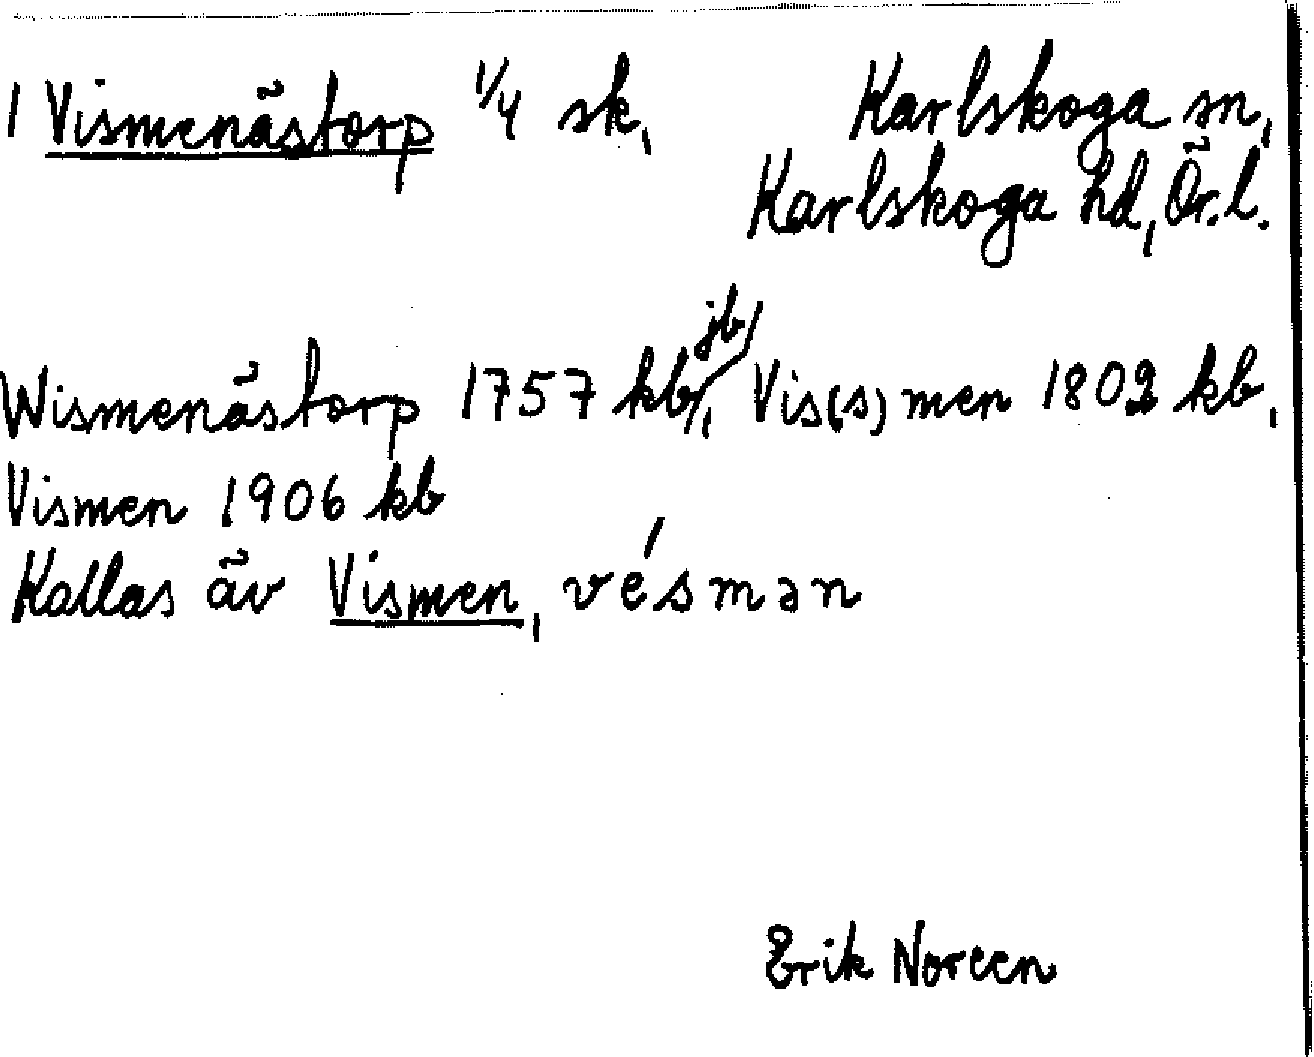 1 Vismenästorp 1/4 sk, Karlskoga sn,
Karlskoga hd, Ör. l.
Wismenästorp 1757 kb, jb, Vis(s)men 1802 kb,
Vismen 1906 kb
Kallas äv Vismen, vésmən
Erik Noreen